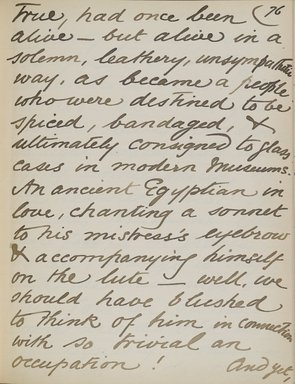 True, had once been (76.
alive — but alive in a
solemn, leathery, unsympathetic
way, as became a people
who were destined to be
spiced, bandaged, &
ultimately consigned to glass
cases in modern Museums.
An ancient Egyptian in
love, chanting a sonnet
to his mistress's eyebrow
& accompanying himself
on the lute — well, we
should have blushed
to think of him in connection
with so trivial an
occupation! And yet,